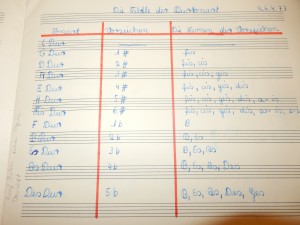 Die Tabelle der Durtonart
Tonart Vorzeichen Die Namen der Vorzeichen
C Dur
G Dur 1 # fis
D Dur 2 # fis, cis
A Dur 3 # fis, cis, gis
E Dur 4 # fis, cis, gis, dis
H Dur 5 # fis, cis, gis, dis, a-is
6 # fis, cis, gis, dis, a-is,
F Dur 1 b B
B Dur 2 b B, Es
Es Dur 3 b B, Es, As
As Dur 4 b B, Es, As, Des
Des Dur 5 b B, Es, As, Des, Ges